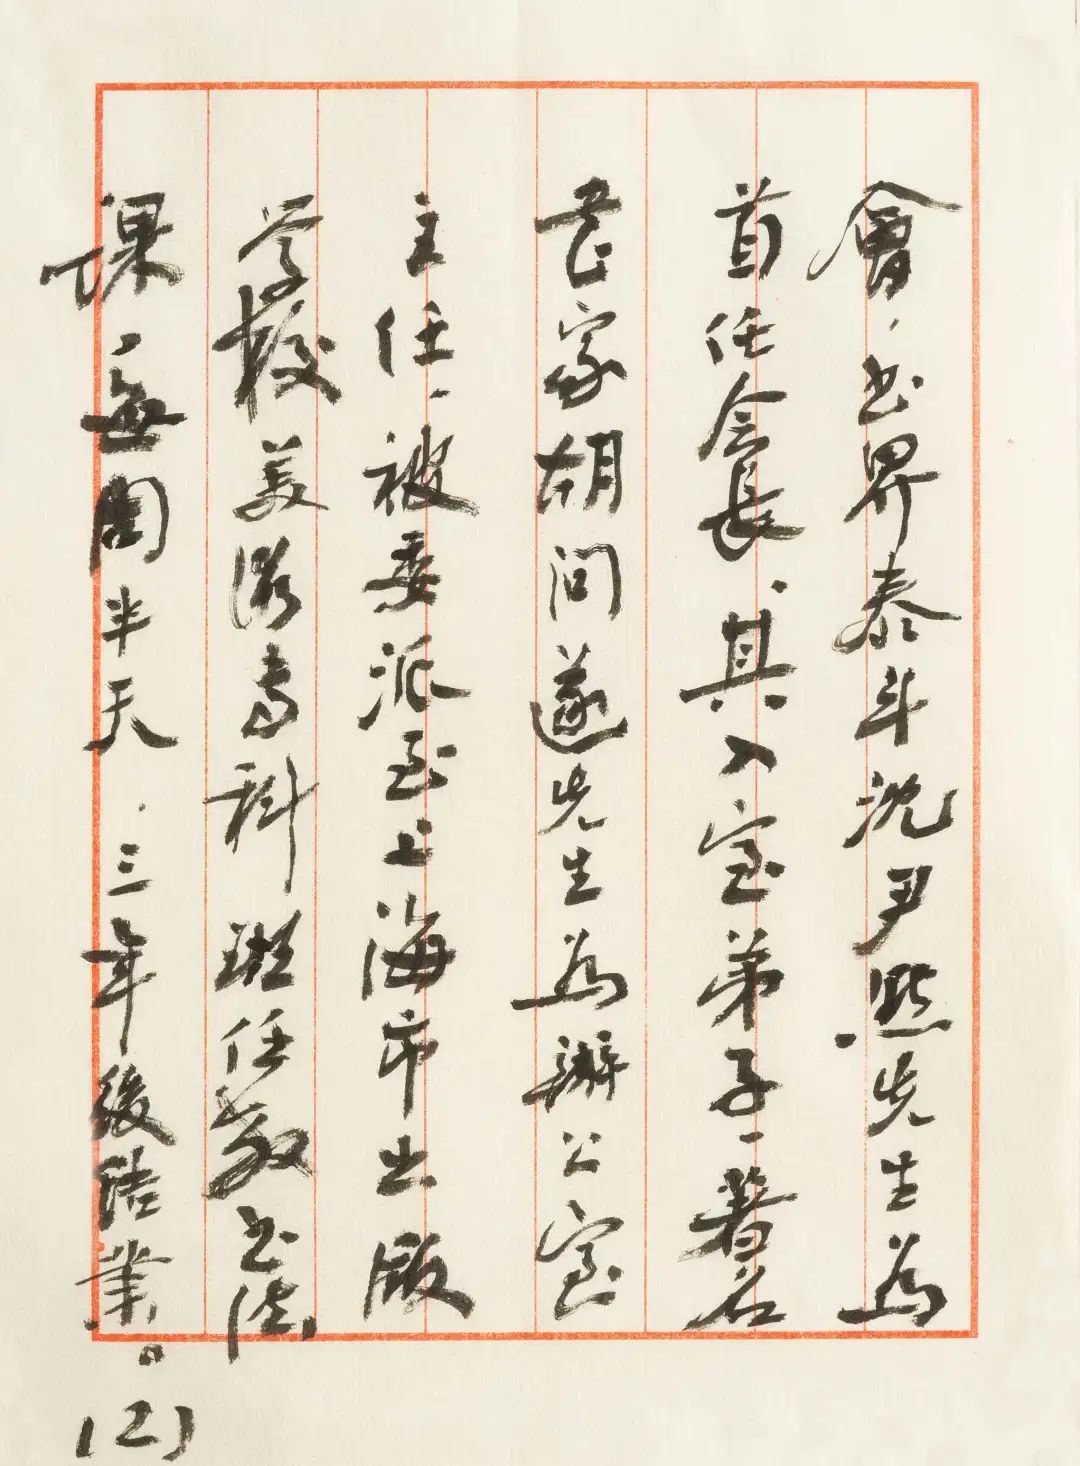 會、书界泰斗沈尹默先生為
首任会長、其入室弟子、著名
書家胡问遂先生為辦公室
主任、被委派至上海市出版
学校美術专科班任教书法
课、每周半天、三年後结業。
(2)